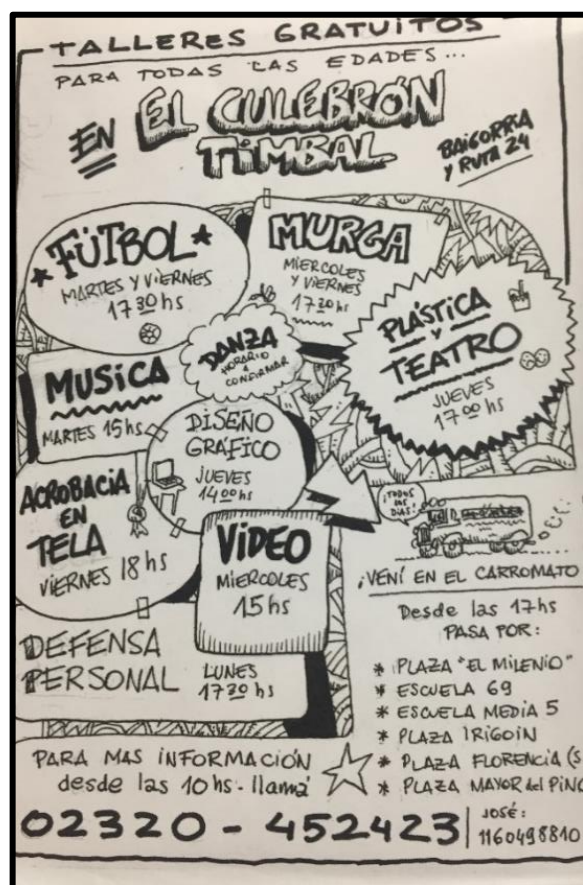 TALLERES GRATUITOS
PARA TODAS LAS EDADES...
EN EL CULEBRÓN
TIMBAL
BAIGORRIA
Y RUTA 24
FÚTBOL
MARTES Y VIERNES
17 30 hs
MURGA
MIERCOLES
Y VIERNES
17 30 hs
DANZA
HORARIO A
CONFIRMAR
PLÁSTICA
Y
TEATRO
JUEVES
17 00 hs
MUSICA
MARTES 15 hs
DISEÑO
GRÁFICO
JUEVES
14 00 hs
ACROBACIA
EN
TELA
VIERNES 18 hs
VIDEO
MIERCOLES
15 hs
DEFENSA
PERSONAL
LUNES
17 30 hs
¡TODOS
LOS
DIAS!
¡VENÍ EN EL CARROMATO
Desde las 17 hs
PASA POR:
* PLAZA "EL MILENIO"
* ESCUELA 69
* ESCUELA MEDIA 5
* PLAZA IRIGOIN
* PLAZA FLORENCIA (S
* PLAZA MAYOR del PINO
PARA MAS INFORMACIÓN
desde las 10 hs - llamá
02320 - 452423
JOSÉ:
1160498810